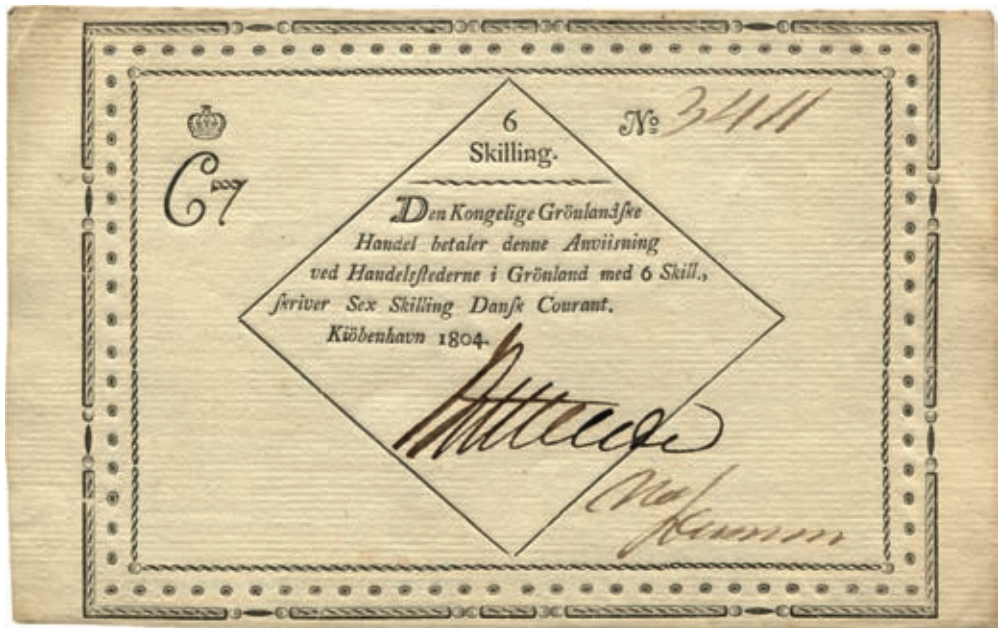 6
Skilling.
No 3411
C7
Den Kongelige Grönlandſke
Handel betaler denne Anviisning
ved Handelsſtederne i Grönland med 6 Skill.,
ſkriver Sex Skilling Danſk Courant.
Kiöbenhavn 1804.